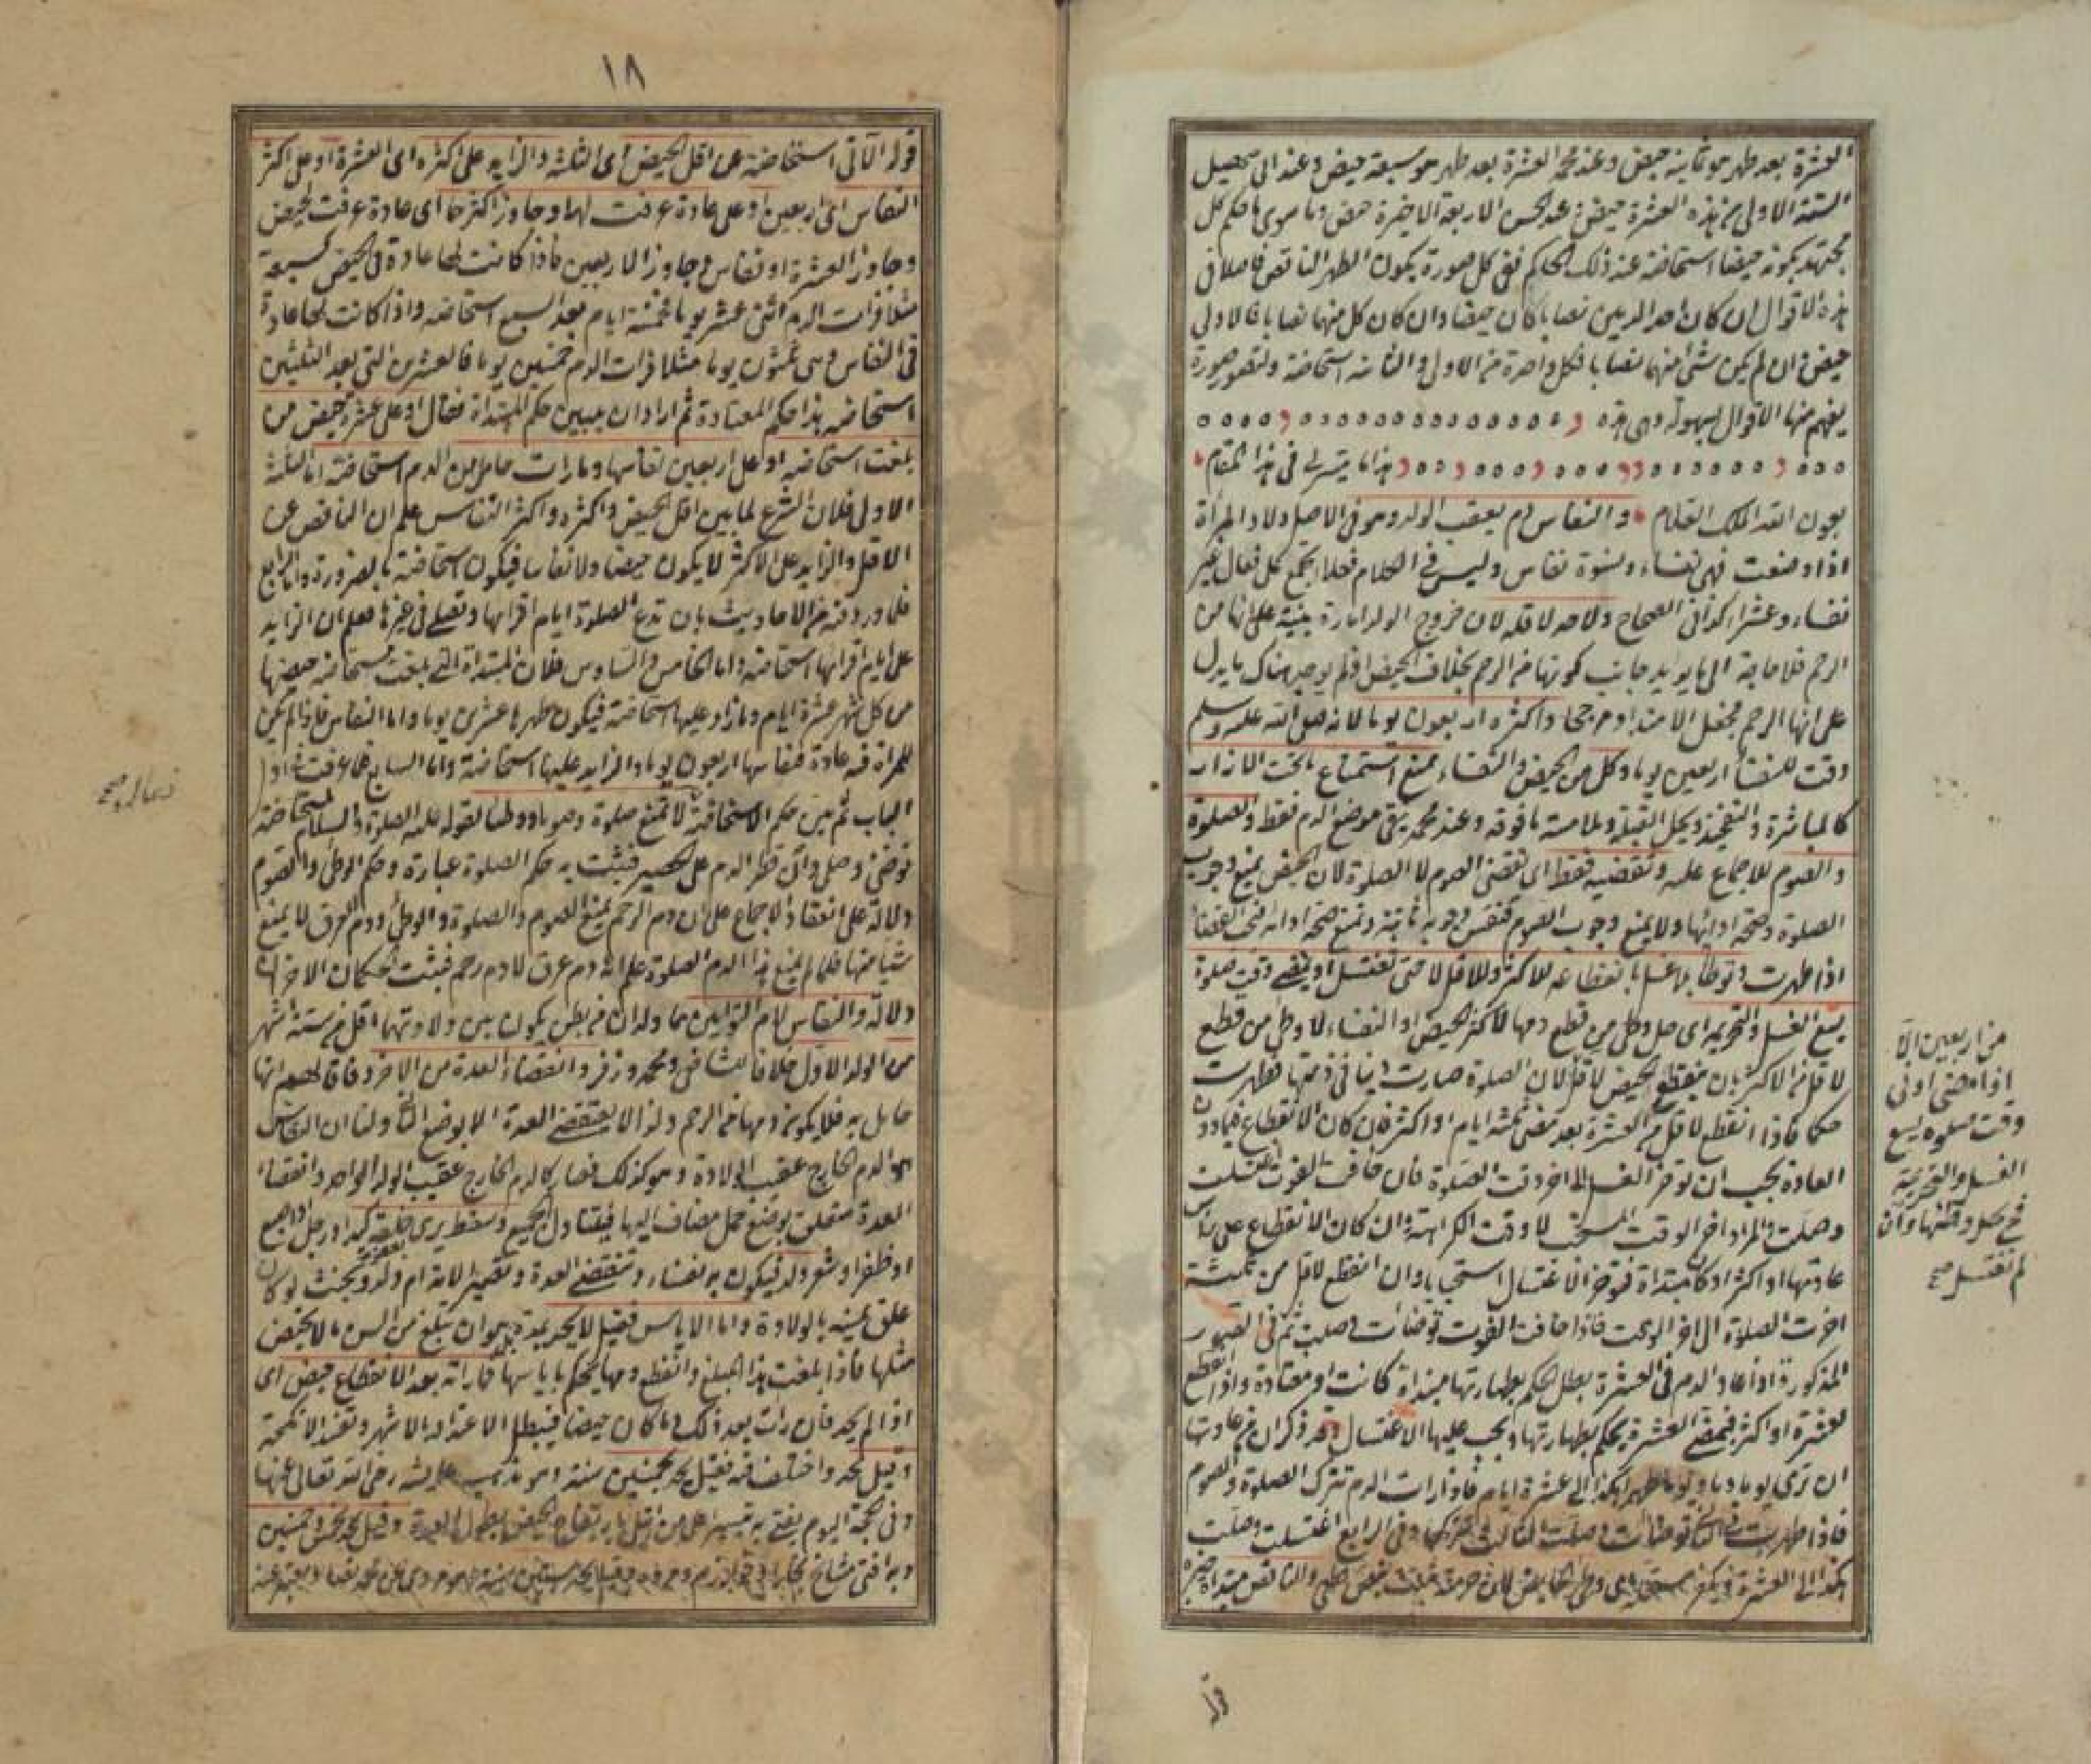 العشرة بعد طهر هو ثمانية حيض وعند محمد العشرة بعد طهر هو سبعة حيض وعند ابى سهيل
الستة الاولى من هذه العشرة حيض وعند الحسن الاربعة الاخيرة حيض وما سوى ما حكم كل
مجتهد بكونه حيضا استحاضة عند ذلك الحاكم ففى كل صورة يكون الطهر الناقص فاصلا فى
هذه الاقوال ان كان احد الدمين نصابا كان حيضا وان كان كل منهما نصابا فالاولى
حيض وان لم يكن شئ منهما نصابا فكل واحدة من الاولى والثانية استحاضة ولنصور صورة
يفهم منها الاقوال بسهولة وهى هذه
هذا ما تيسر لى فى هذا المقام
بعون الله الملك العلام والنفاس دم يعقب الولد وهو فى الاصل ولاد المرأة
اذا وضعت فهى نفساء ونسوة نفاس وليس فى الكلام فعلاء يجمع على فعال غير
نفساء وعشراء كذا فى الصحاح ولا حد لاقله لان خروج الولد امارة بينة على انها من
الرحم فلا حاجة الى ما يؤيد جانب كونها من الرحم بخلاف الحيض اذ لم يوجد هناك ما يدل
على انها من الرحم واكثره اربعون يوما لانه صلى الله عليه وسلم
وقت للنفساء اربعين يوما وكل من الحيض والنفاس يمنع استمتاع ما تحت الازار
كالمباشرة والتفخيذ ويحل القبلة وملامسة ما فوقه وعند محمد يتقى موضع الدم فقط والصلوة
والصوم للاجماع عليه وتقضيه فقط اى تقضى الصوم لا الصلوة لان الحيض يمنع وجوب
الصلوة وصحة ادائها ولا يمنع وجوب الصوم فنفس وجوبه ثابتة وتمنع صحة ادائه فيجب القضاء
اذا طهرت وتوطأ بلا غسل بانقطاعه للاكثر وللاقل لا حتى تغتسل او يمضى وقت صلوة
يسع الغسل والتحريمة اى حل وطئ من قطع دمها لاكثر الحيض او النفاس لا وطئ من قطع
لاقل من الاكثر بان ينقطع الحيض لاقل لان الصلوة صارت دينا فى ذمتها فطهرت
حكما فاذا انقطع لاقل من العشرة بعد مضى ثلثة ايام او اكثر فان كان الانقطاع فيما دون
العادة يجب ان تؤخر الغسل الى اخر وقت الصلوة فان خافت الفوت اغتسلت
وصلت والمراد اخر الوقت المستحب لا وقت الكراهة وان كان الانقطاع على رأس
عادتها او اكثر او كان مبتدأة فتؤخر الاغتسال استحبابا وان انقطع لاقل من ثلثة
اخرت الصلوة الى اخر الوقت فاذا خافت الفوت توضأت وصلت ثم فى الصور
المذكورة اذا عاد الدم فى العشرة بطل الحكم بطهارتها مبتدأة كانت او معتادة واذا انقطع
لعشرة او اكثر فبمضى العشرة يحكم بطهارتها ويجب عليها الاغتسال وقد ذكر ان من عادتها
ان ترى يوما دما ويوما طهرا هكذا الى عشرة ايام فاذا رأت الدم تترك الصلوة والصوم
فاذا طهرت فى الثانى توضأت وصلت ثم فى الثالث تتركهما وفى الرابع اغتسلت وصلت
هكذا الى العشرة
من اربعين الا
اذا مضى ادنى
وقت صلوة يسع
الغسل والتحريمة
فح يحل وطئها وان
لم تغتسل صح
١٨
قوله الآتى استحاضة عن اقل الحيض اى الثلثة والزايد على اكثره اى العشرة او على اكثر
النفاس اى اربعين او على عادة عرفت لهما وجاوز اكثرهما اى عادة عرفت لحيض
وجاوز العشرة او نفاس وجاوز الاربعين فاذا كانت لها عادة فى الحيض كسبعة
مثلا فرأت الدم اثنى عشر يوما فخمسة ايام بعد السبع استحاضة واذا كانت لها عادة
فى النفاس وهى ثلثون يوما مثلا فرأت الدم خمسين يوما فالعشرون التى بعد الثلثين
استحاضة هذا حكم المعتادة ثم اراد ان يبين حكم المبتدأة فقال او على عشرة حيض من
بلغت استحاضة او على اربعين نفاسها وما رأت حامل من الدم استحاضة اما الثلثة
الاولى فلان الشرع لما بين اقل الحيض واكثره واكثر النفاس علم ان الناقص عن
الاقل والزايد على الاكثر لا يكون حيضا ولا نفاسا فيكون استحاضة بالضرورة واما الرابع
فلما ورد فيه من الاحاديث بان تدع الصلوة ايام اقرائها وتصلى فى غيرها فعلم ان الزايد
على ايام اقرائها استحاضة واما الخامس والسادس فلان المبتدأة التى بلغت مستحاضة حيضها
من كل شهر عشرة ايام وما زاد عليها استحاضة فيكون طهرها عشرين يوما واما النفاس فاذا لم يكن
للمرأة فيه عادة فنفاسها اربعون يوما والزايد عليها استحاضة واما السابع فلما عرفت فى اول
الباب ثم بين حكم الاستحاضة لا تمنع صلوة وصوما ووطئا لقوله عليه الصلوة والسلام لمستحاضة
توضئ وصلى وان قطر الدم على الحصير فثبت به حكم الصلوة عبارة وحكم الوطئ والصوم
دلالة على انعقاد الاجماع على ان دم الرحم يمنع الصوم والصلوة والوطئ ودم العرق لا يمنع
شيئا منها فلما لم يمنع هذا الدم الصلوة علم انه دم عرق لا دم رحم فيثبت الحكمان الاخران
دلالة والنفاس لام التوأمين هما ولدان من بطن يكون بين ولادتهما اقل من ستة اشهر
من الولد الاول خلافا للشافعى ومحمد وزفر وانقضاء العدة من الاخر وفاقا لهم انها
حامل به فلا يكون دمها من الرحم ولذا لا تنقضى العدة الا بوضع الثانى ولنا ان النفاس
هو الدم الخارج عقيب الولادة وهو كذلك فصار كالدم الخارج عقيب الولد الواحد وانقضاء
العدة متعلق بوضع حمل مضاف اليها فيتناول الجميع وسقط يرى بعض خلقه كيد او رجل او اصبع
او ظفر او شعر ولد فيكون به نفساء وتنقضى العدة وتصير الامة ام ولد ويحنث لو كان
علق يمينه بالولادة واما الاياس فقيل لا يحد بمدة بل هو ان تبلغ من السن ما لا يحيض
مثلها فاذا بلغت هذا المبلغ وانقطع دمها يحكم باياسها فما رأته بعد الانقطاع حيض اى
اذا لم يحد فان رأت بعد ذلك دما كان حيضا فيبطل الاعتداد بالاشهر وتفسد الانكحة
وقيل يحد واختلف فيه فقيل يحد بخمسين سنة وهو مذهب عايشة رضى الله تعالى عنها
وفى الحجة اليوم يفتى به تيسيرا على من ابتلى بارتفاع الحيض بطول العدة وقيل يحد بخمس وخمسين
وبه افتى مشايخ بخارا وخوارزم ومرو